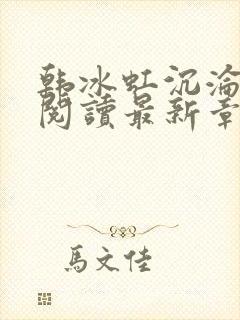 韓冰虹沉淪
閱讀最新章
馬文佳